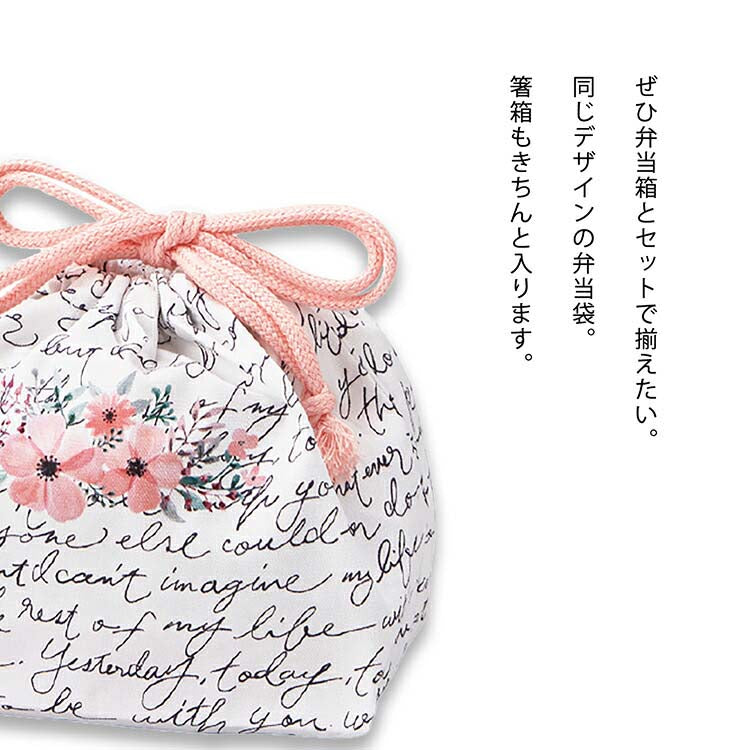 ぜひ弁当箱とセットで揃えたい。
同じデザインの弁当袋。
箸箱もきちんと入ります。
of my
the
up you whatever
yone else could or do
nt I can't imagine my life
rest of my life wi
Yesterday, today, to
to be with you. w